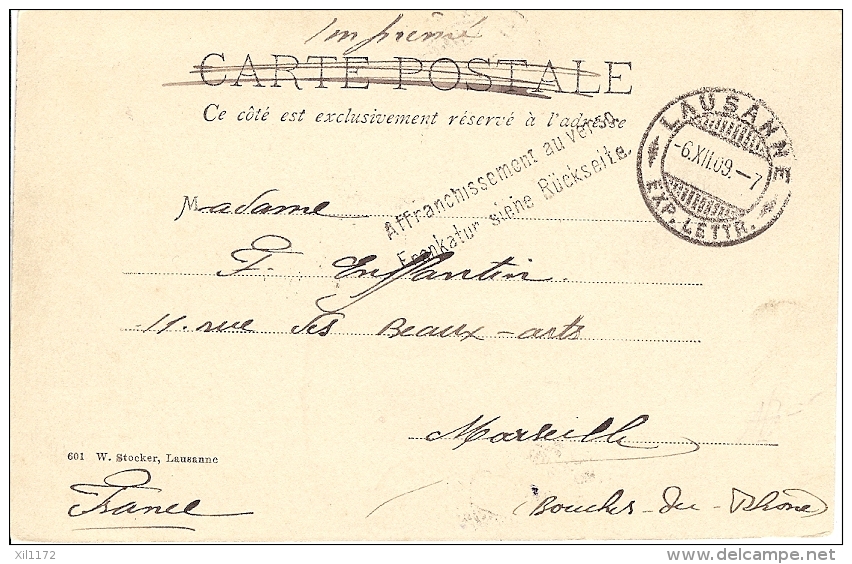 Imprimé
CARTE POSTALE
Ce côté est exclusivement réservé à l'adresse
Affranchissement au verso.
Frankatur siehe Rückseite.
LAUSANNE
-6.XII.09.-7
EXP. LETTR.
Madame
F. Enffantin.
11. rue des Beaux-arts
Marseille
601 W. Stocker, Lausanne
France
Bouches-du-Rhône
xil1172
delcampe.net